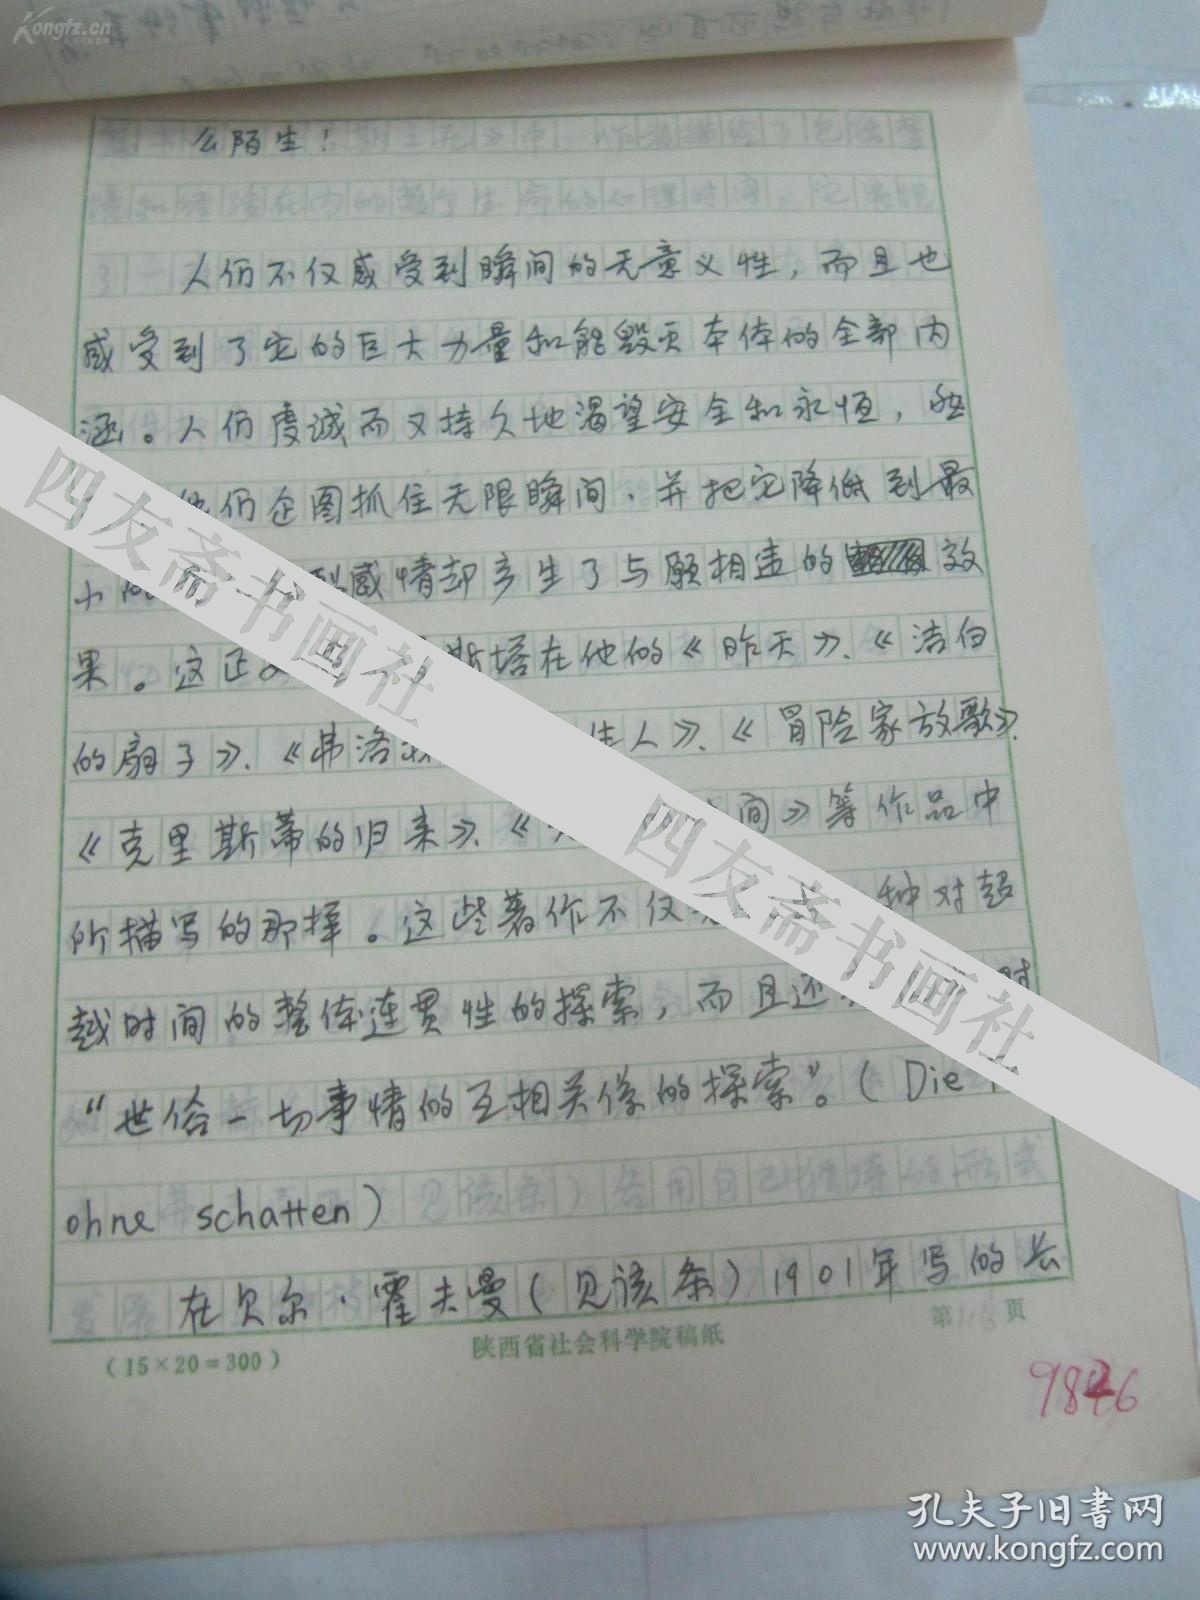 Kongfz.cn
么陌生！
人们不仅感受到瞬间的无意义性，而且也
感受到了它的巨大力量和能毁灭本体的全部内
涵。人们虔诚而又持久地渴望安全和永恒，然
他们企图抓住无限瞬间，并把它降低到最
小 感情却产生了与愿相违的 效
果。这正 斯塔在他的《昨天》、《洁白
的扇子》、《弗洛 人》、《冒险家放歌》、
《克里斯蒂的归来》、《 间》等作品中
所描写的那样。这些著作不仅 种对超
越时间的整体连贯性的探索，而且还 时
“世俗一切事情的互相关系的探索”。（Die
ohne schatten）
在贝尔·霍夫曼（见该条）1901年写的长
(15×20=300)
陕西省社会科学院稿纸
第 页
四友斋书画社
四友斋书画社
孔夫子旧书网
www.kongfz.com